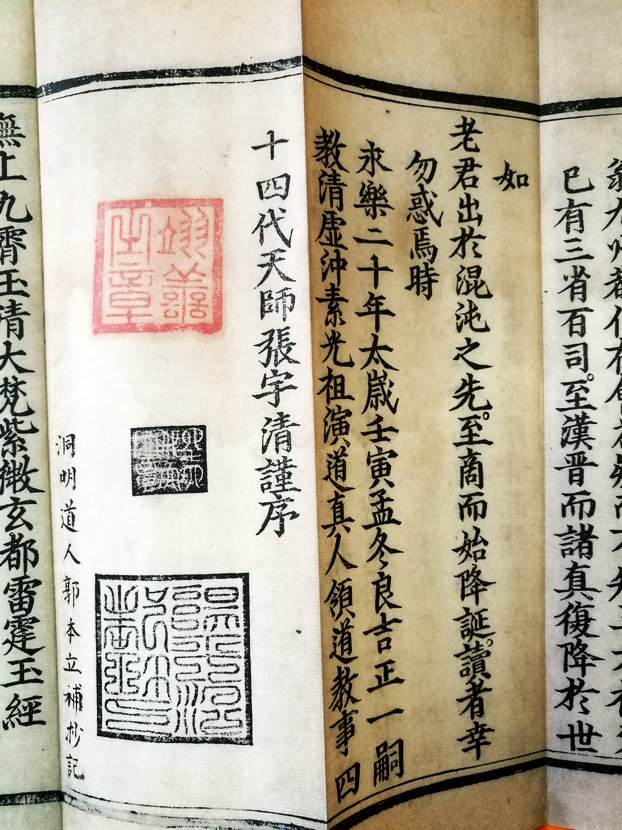 巳有三省百司。至漢晉而諸真復降於世
如
老君出於混沌之先。至商而始降誕。讀者幸
勿惑焉時
永樂二十年太歲壬寅孟冬良吉正一嗣
教清虛沖素光祖演道真人領道教事四
十四代天師張宇清謹序
翊善之章
洞明道人郭本立補抄記
無上九霄玉清大梵紫微玄都雷霆玉經